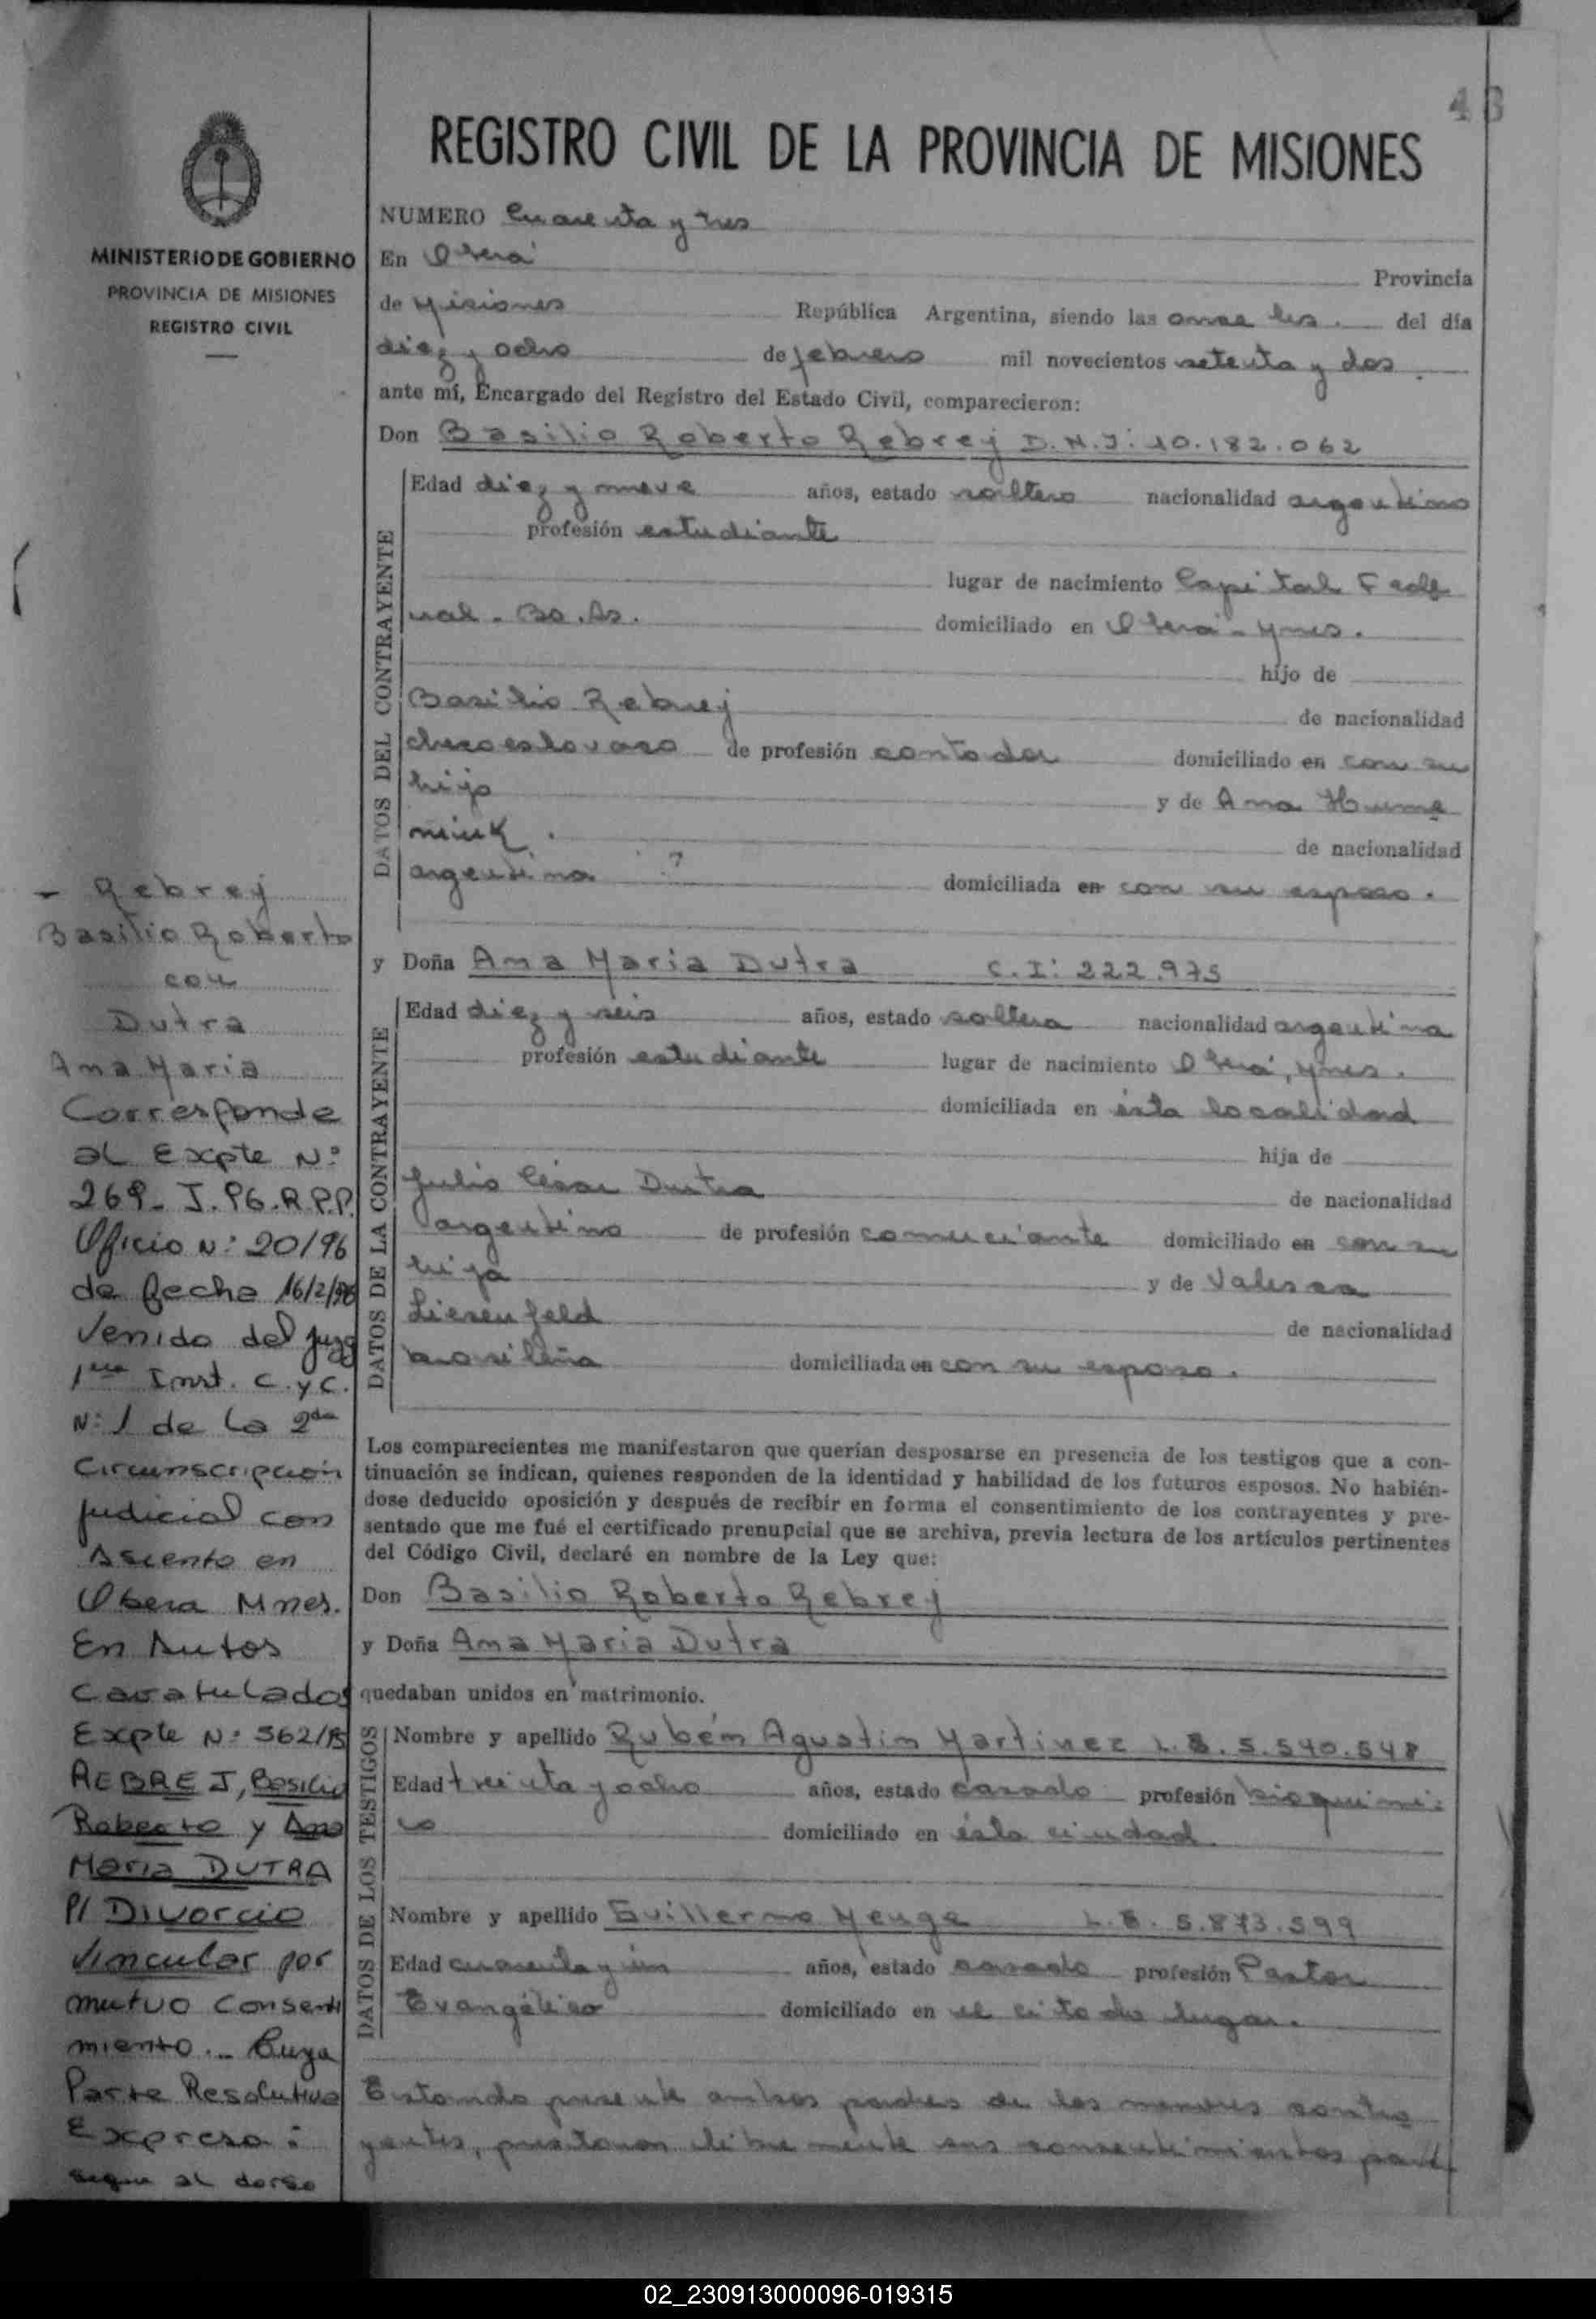 43
REGISTRO CIVIL DE LA PROVINCIA DE MISIONES
MINISTERIO DE GOBIERNO
PROVINCIA DE MISIONES
REGISTRO CIVIL
NUMERO Cuarenta y tres
En Oberá Provincia
de Misiones República Argentina, siendo las once hs. del día
diez y ocho de febrero mil novecientos setenta y dos.
ante mí, Encargado del Registro del Estado Civil, comparecieron:
Don Basilio Roberto Rebrej D.N.I: 10.182.062
DATOS DEL CONTRAYENTE
Edad diez y nueve años, estado soltero nacionalidad argentino
profesión estudiante
lugar de nacimiento Capital Fede
ral - Bs. As. domiciliado en Oberá - Mnes.
hijo de
Basilio Rebrej de nacionalidad
checoeslovaco de profesión contador domiciliado en con su
hijo y de Ana
de nacionalidad
argentina ? domiciliada en con su esposo.
y Doña Ana Maria Dutra C.I: 222.975
DATOS DE LA CONTRAYENTE
Edad diez y seis años, estado soltera nacionalidad argentina
profesión estudiante lugar de nacimiento Oberá, Mnes.
domiciliada en ésta localidad
hija de
Julio César Dutra de nacionalidad
argentino de profesión comerciante domiciliado en con su
hija y de Valesca
Liesenfeld de nacionalidad
brasileña domiciliada en con su esposo.
Los comparecientes me manifestaron que querían desposarse en presencia de los testigos que a con-
tinuación se indican, quienes responden de la identidad y habilidad de los futuros esposos. No habién-
dose deducido oposición y después de recibir en forma el consentimiento de los contrayentes y pre-
sentado que me fué el certificado prenupcial que se archiva, previa lectura de los artículos pertinentes
del Código Civil, declaré en nombre de la Ley que:
Don Basilio Roberto Rebrej
y Doña Ana Maria Dutra
quedaban unidos en matrimonio.
DATOS DE LOS TESTIGOS
Nombre y apellido Rubén Agustin Martinez L.E. 5.540.548
Edad treinta y ocho años, estado casado profesión bioquími-
co domiciliado en ésta ciudad
Nombre y apellido Guillermo Menge L.E. 5.873.599
Edad cuarenta y un años, estado casado profesión Pastor
Evangélico domiciliado en el citado lugar.
Estando presente ambos padres de los menores contra
yentes, prestaron libremente sus consentimientos para
- Rebrej
Basilio Roberto
con
Dutra
Ana Maria
Corresponde
al Expte N:
269-J.96.R.P.P.
Oficio N: 20/96
de fecha 16/2/96
Venido del Juzg
1era Inst. C. y C.
N: 1 de la 2da
Circunscripción
Judicial con
Asiento en
Obera Mnes.
En Autos
Caratulados
Expte N: 562/95
REBREJ, Basilio
Roberto y Ana
Maria DUTRA
P/ Divorcio
Vincular por
mutuo consenti
miento.- Cuya
Parte Resolutiva
Expresa:
sigue al dorso
02_230913000096-019315